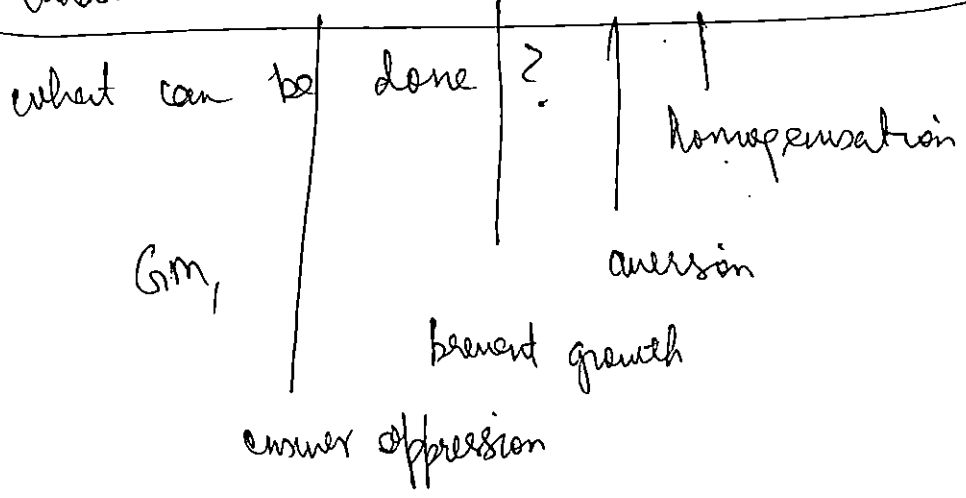 what can be done ?
homogenisation
GM,
aversion
prevent growth
ensures oppression